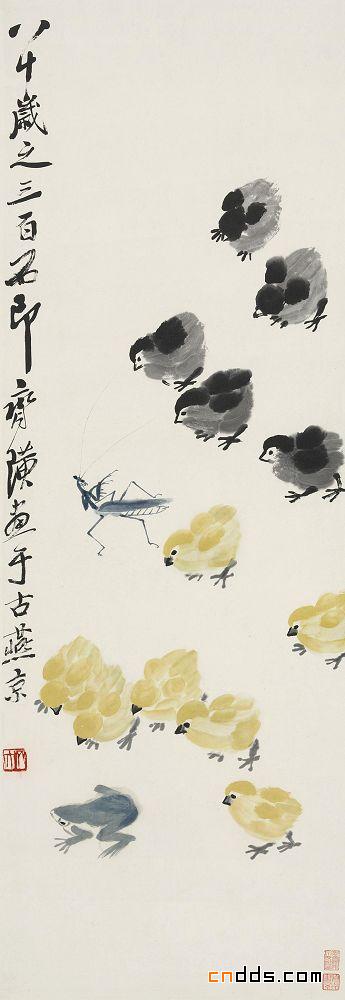 八十歲之三百石印齊璜画于古燕京
cndds.com